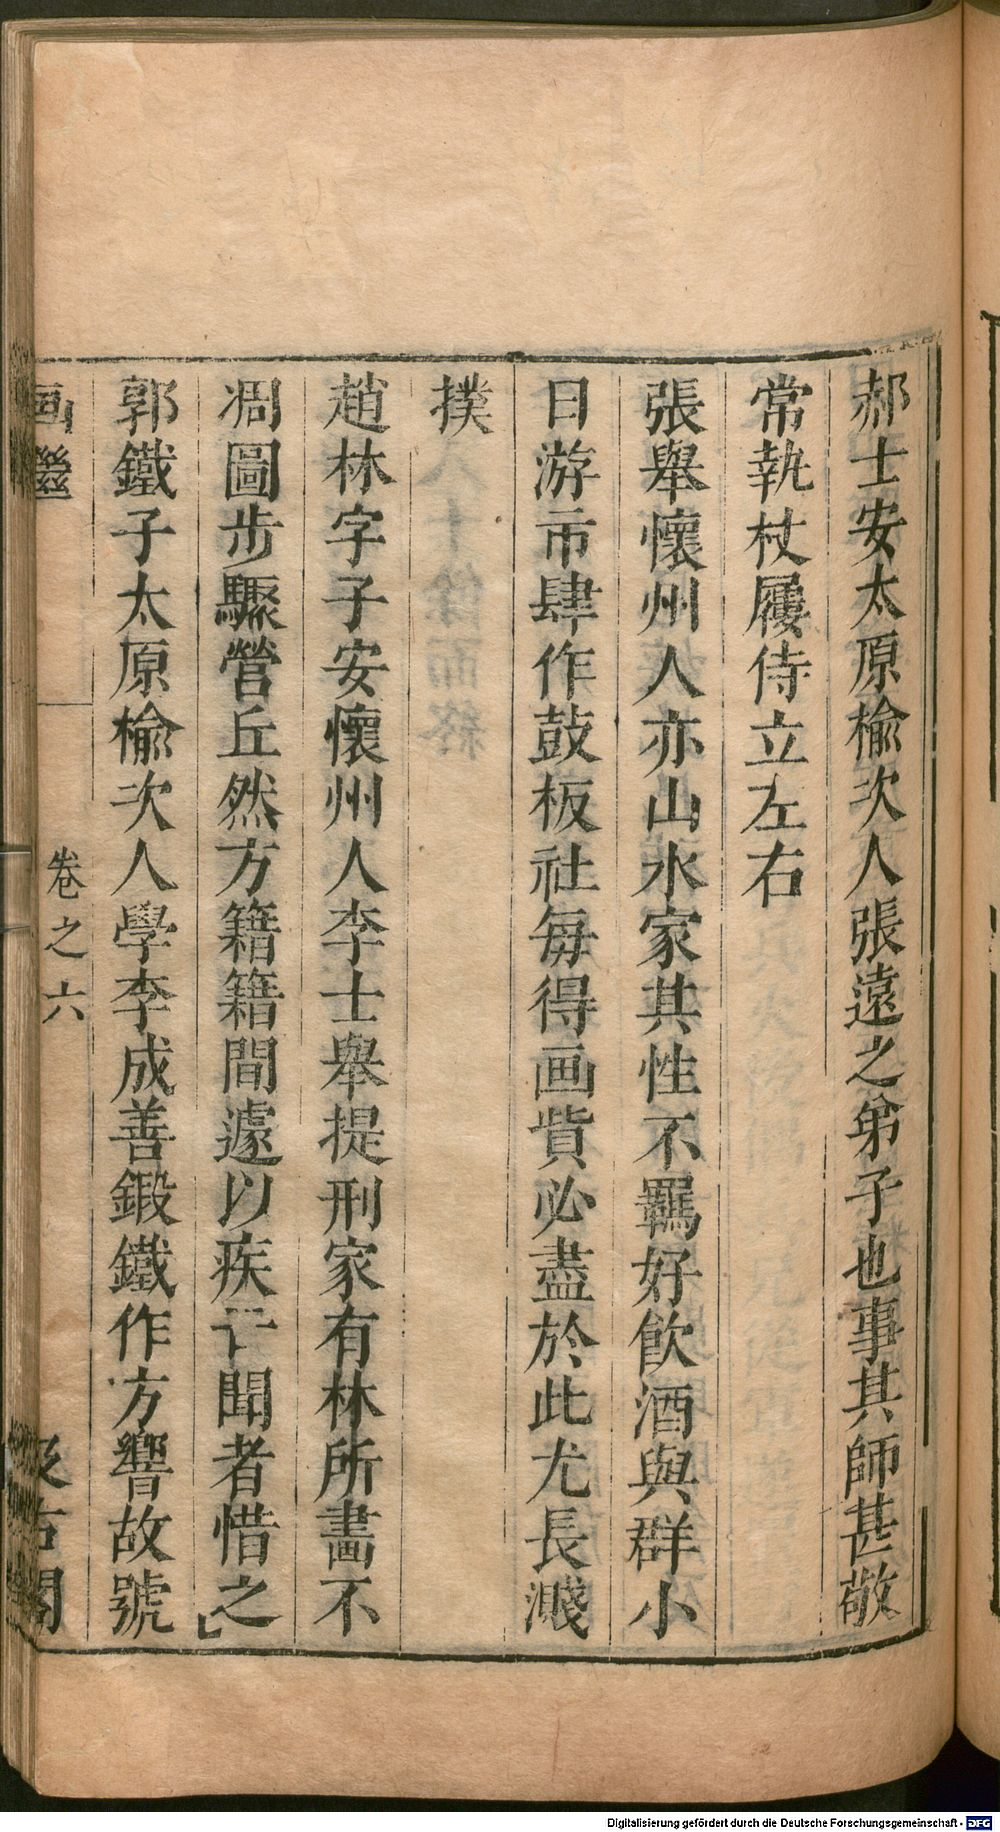 郝士安太原榆次人張遠之弟子也事其師甚敬
常執杖屨侍立左右
張舉懷州人亦山水家其性不羈好飲酒與群小
日游市肆作鼓板社每得画貲必盡於此尤長濺
撲
趙林字子安懷州人李士舉提刑家有林所畫不
凋圖步驟營丘然方籍籍間遽以疾亡聞者惜之
郭鐵子太原榆次人學李成善鍛鐵作方響故號
画繼 卷之六 汲古閣
Digitalisierung gefördert durch die Deutsche Forschungsgemeinschaft - DFG